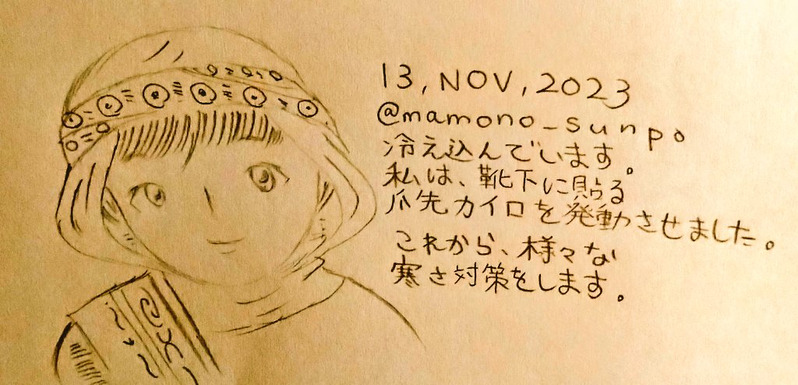 13, NOV, 2023
@mamono_sunpo
冷え込んでいます。
私は、靴下に貼る
爪先カイロを発動させました。
これから、様々な
寒さ対策をします。